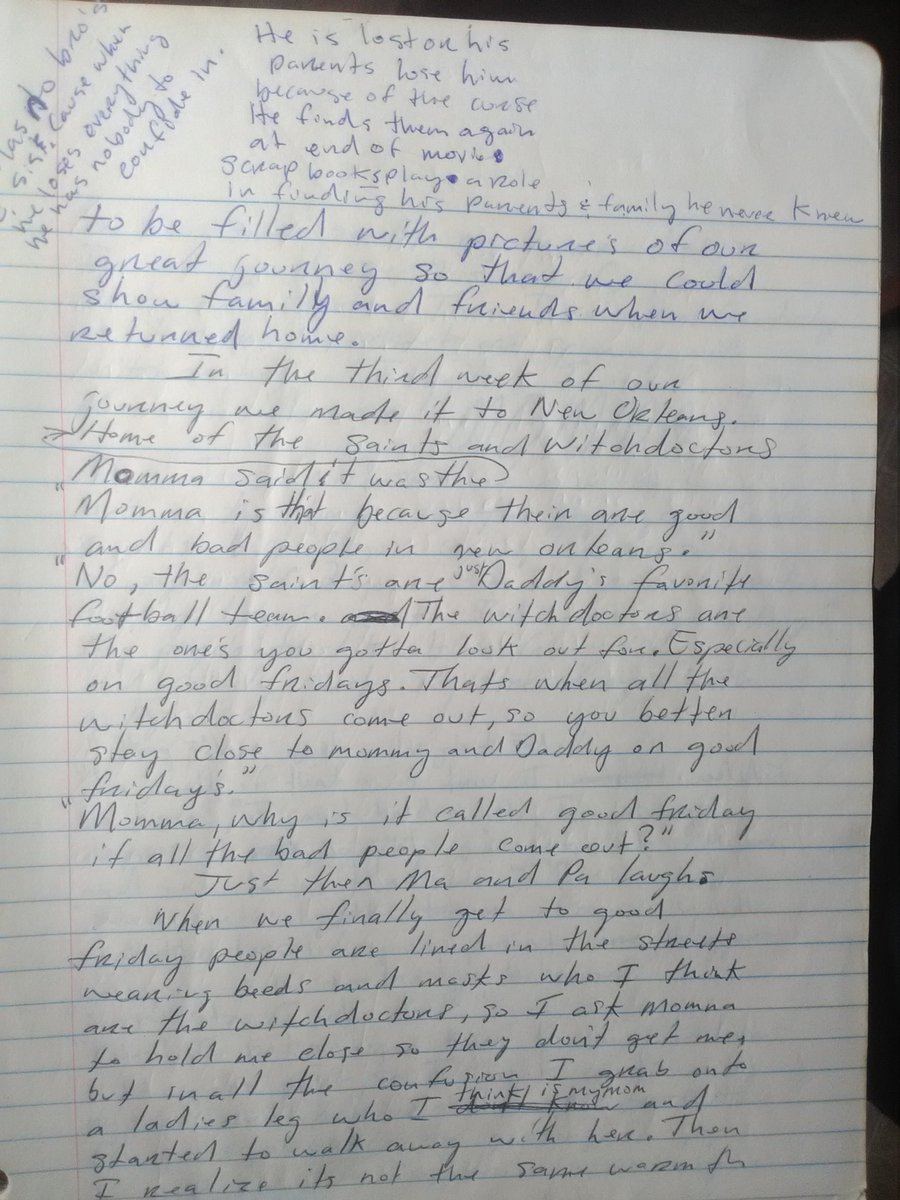 has no bro's
sis. Cause when
he loses everything
he has nobody to
confide in.
He is lost or his
parents lose him
because of the curse
He finds them again
at end of movie.
scrap books play a role
in finding his parents & family he never knew
to be filled with picture's of our
great journey so that we could
show family and friends when we
returned home.
In the third week of our
journey we made it to New Orleans.
Home of the saints and witchdoctors
"Momma said it was the
Momma is that because their are good
and bad people in new orleans."
"No, the saint's are just Daddy's favorite
football team. The witchdoctors are
the one's you gotta look out for. Especially
on good fridays. Thats when all the
witchdoctors come out, so you better
stay close to mommy and Daddy on good
friday's."
"Momma, why is it called good friday
if all the bad people come out?"
Just then Ma and Pa laughs
When we finally get to good
friday people are lined in the streets
wearing beeds and masks who I think
are the witchdoctors, so I ask Momma
to hold me close so they don't get me,
but in all the confusion I grab onto
a ladies leg who I think is my mom and
started to walk away with her. Then
I realize its not the same warmth